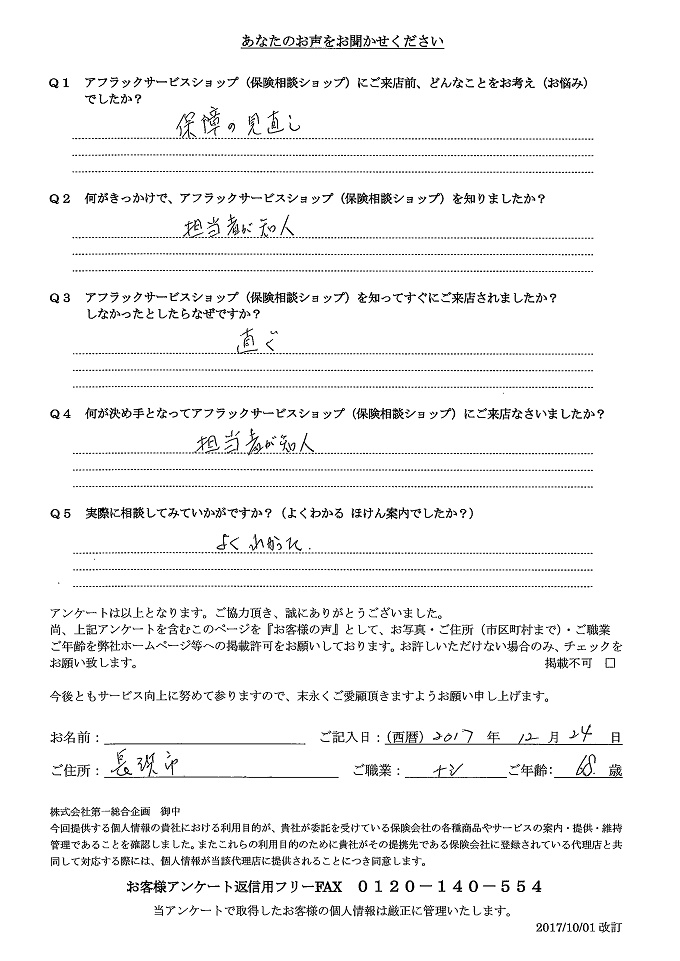 あなたのお声をお聞かせください
Q1 アフラックサービスショップ(保険相談ショップ)にご来店前、どんなことをお考え(お悩み)
でしたか?
保障の見直し
Q2 何がきっかけで、アフラックサービスショップ(保険相談ショップ)を知りましたか?
担当者が知人
Q3 アフラックサービスショップ(保険相談ショップ)を知ってすぐにご来店されましたか?
しなかったとしたらなぜですか?
直ぐ
Q4 何が決め手となってアフラックサービスショップ(保険相談ショップ)にご来店なさいましたか?
担当者が知人
Q5 実際に相談してみていかがですか?(よくわかる ほけん案内でしたか?)
よくわかった.
アンケートは以上となります。ご協力頂き、誠にありがとうございました。
尚、上記アンケートを含むこのページを『お客様の声』として、お写真・ご住所(市区町村まで)・ご職業
ご年齢を弊社ホームページ等への掲載許可をお願いしております。お許しいただけない場合のみ、チェックを
お願い致します。 掲載不可 □
今後ともサービス向上に努めて参りますので、末永くご愛顧頂きますようお願い申し上げます。
お名前: ご記入日:(西暦)2017年 12月 24日
ご住所: 市 ご職業: ナシ ご年齢: 68. 歳
株式会社第一総合企画 御中
今回提供する個人情報の貴社における利用目的が、貴社が委託を受けている保険会社の各種商品やサービスの案内・提供・維持
管理であることを確認しました。またこれらの利用目的のために貴社がその提携先である保険会社に登録されている代理店と共
同して対応する際には、個人情報が当該代理店に提供されることにつき同意します。
お客様アンケート返信用フリーFAX 0120-140-554
当アンケートで取得したお客様の個人情報は厳正に管理いたします。
2017/10/01 改訂